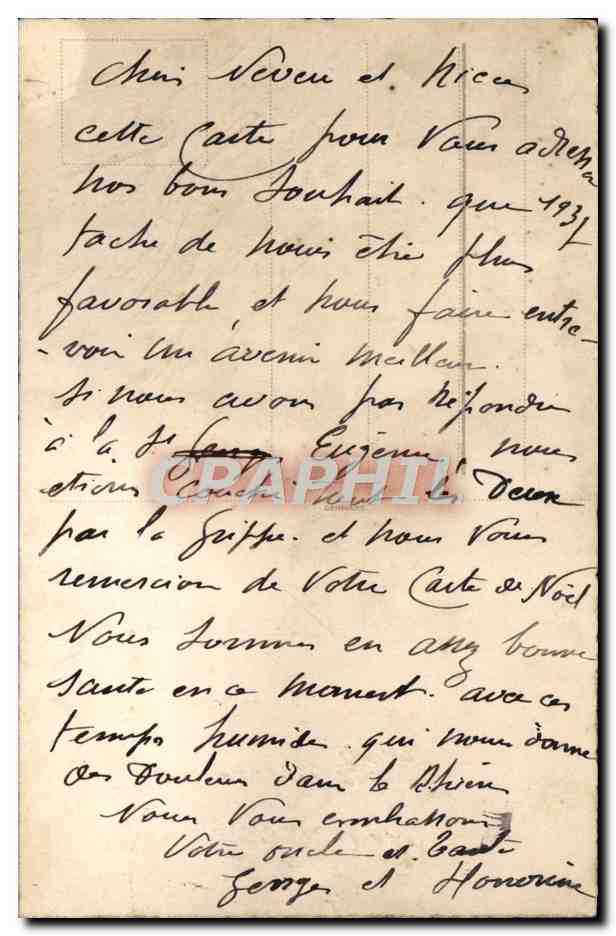 Chers Neveu et Nièces
cette Carte pour Vous adresser
nos bons Souhait. que 1935
tache de nous être plus
favorable, et nous faire entre-
-voir un avenir meilleur.
Si nous avons pas répondu
à la St Eugénie, nous
etions Couché tout les Deux
par la Grippe. et nous Vous
remercion de Votre Carte de Noël
Nous Sommes en assez bonne
Santé en ce moment. avec ces
temps humides qui nous donne
des Douleurs dans le
Nous Vous embrassons
Votre oncle et Tante
Georges et Honorine
CPARPHIL